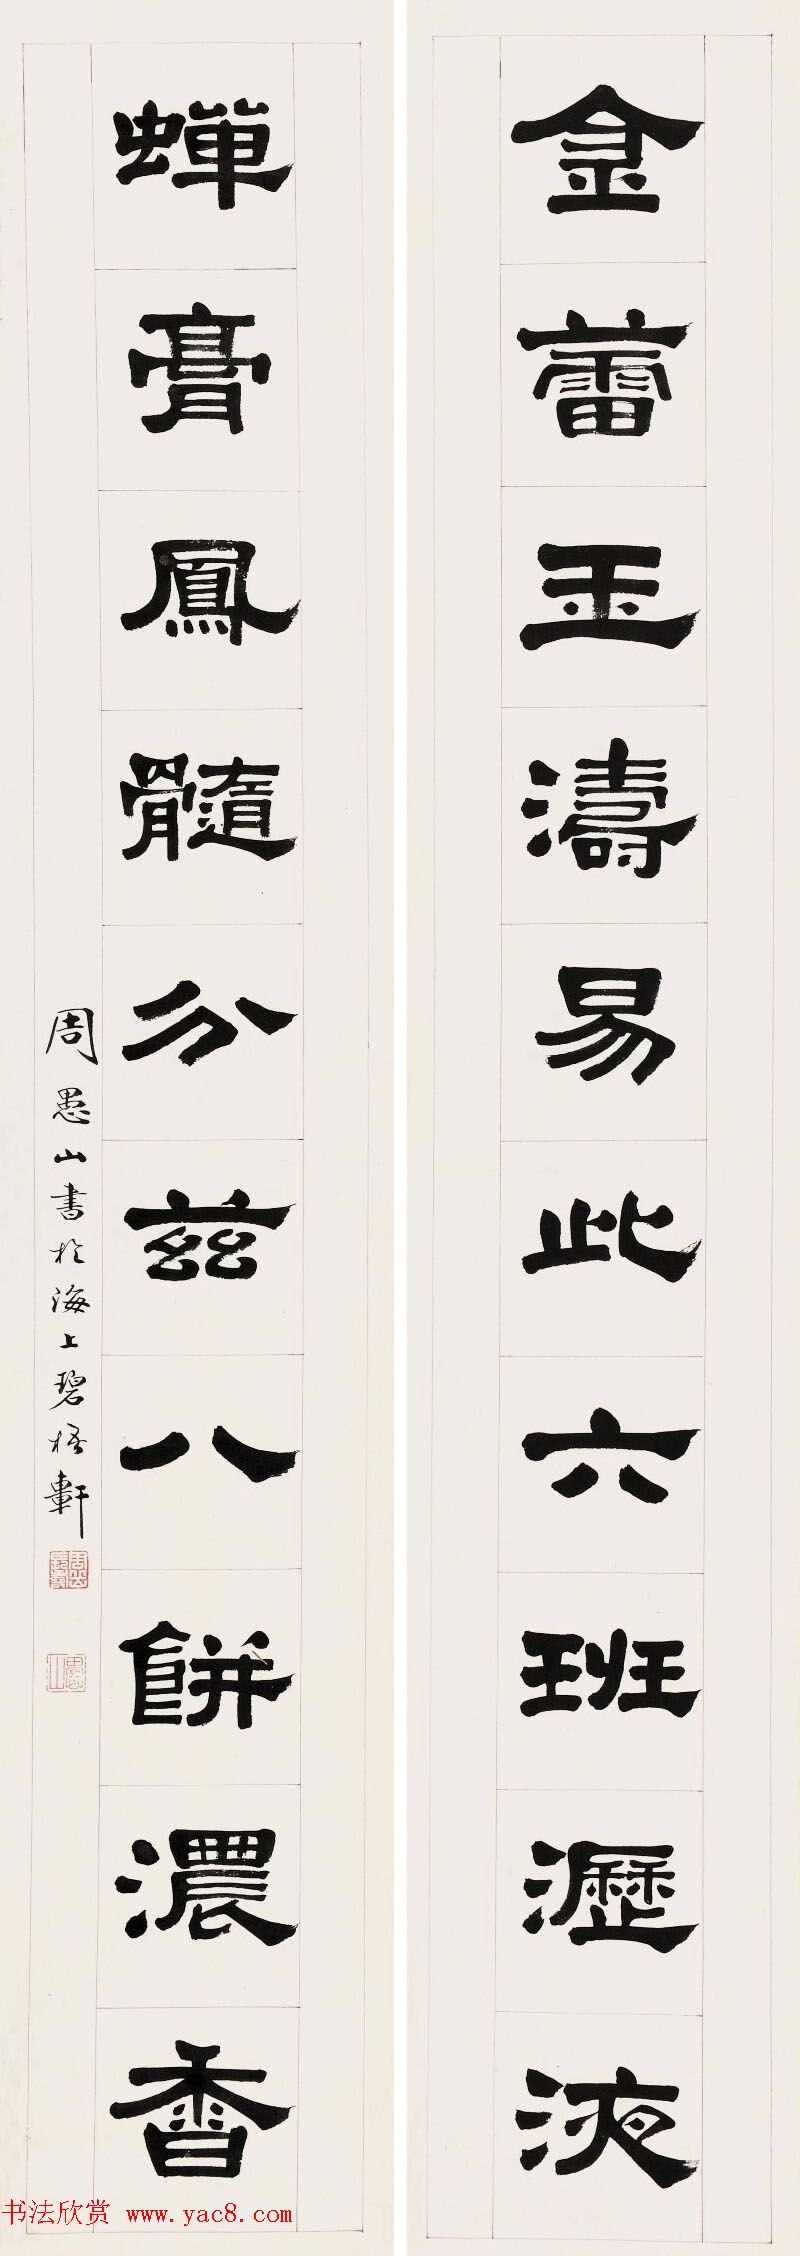 金蕾玉濤易此六班瀝液
蟬膏鳳髓分茲八餅濃香
周愚山書於海上碧梧軒
书法欣赏 www.yac8.com